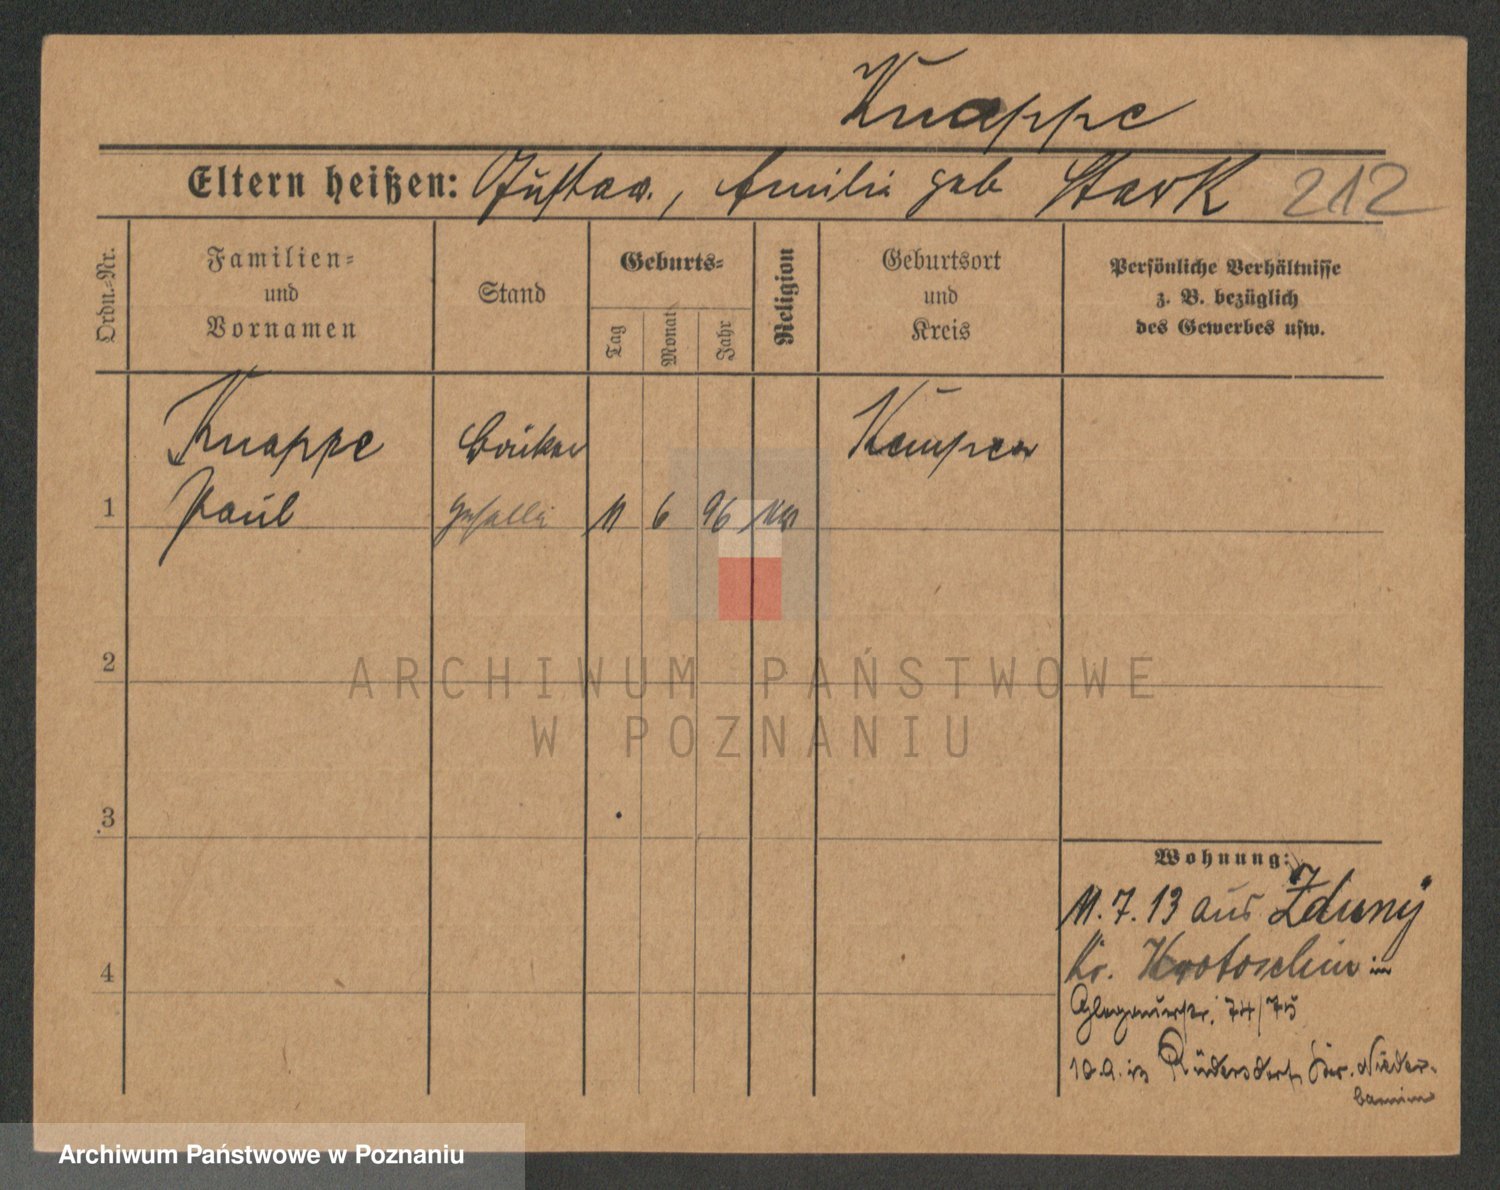 Knappe
Eltern heißen: Gustav, Emilie geb Stark 212
Ordn.-Nr.
Familien-
und
Vornamen
Stand
Geburts-
Tag
Monat
Jahr
Religion
Geburtsort
und
Kreis
Persönliche Verhältnisse
z. B. bezüglich
des Gewerbes usw.
Knappe
Kempen
1 Paul 11 6 96
2
3
4
Wohnung:
11. 7. 13 aus Zduny
Kr. Krotoschin in
Glogauerstr. 74/75
Rüdersdorf Kr. Nieder-
barnim
ARCHIWUM PAŃSTWOWE
W POZNANIU
Archiwum Państwowe w Poznaniu